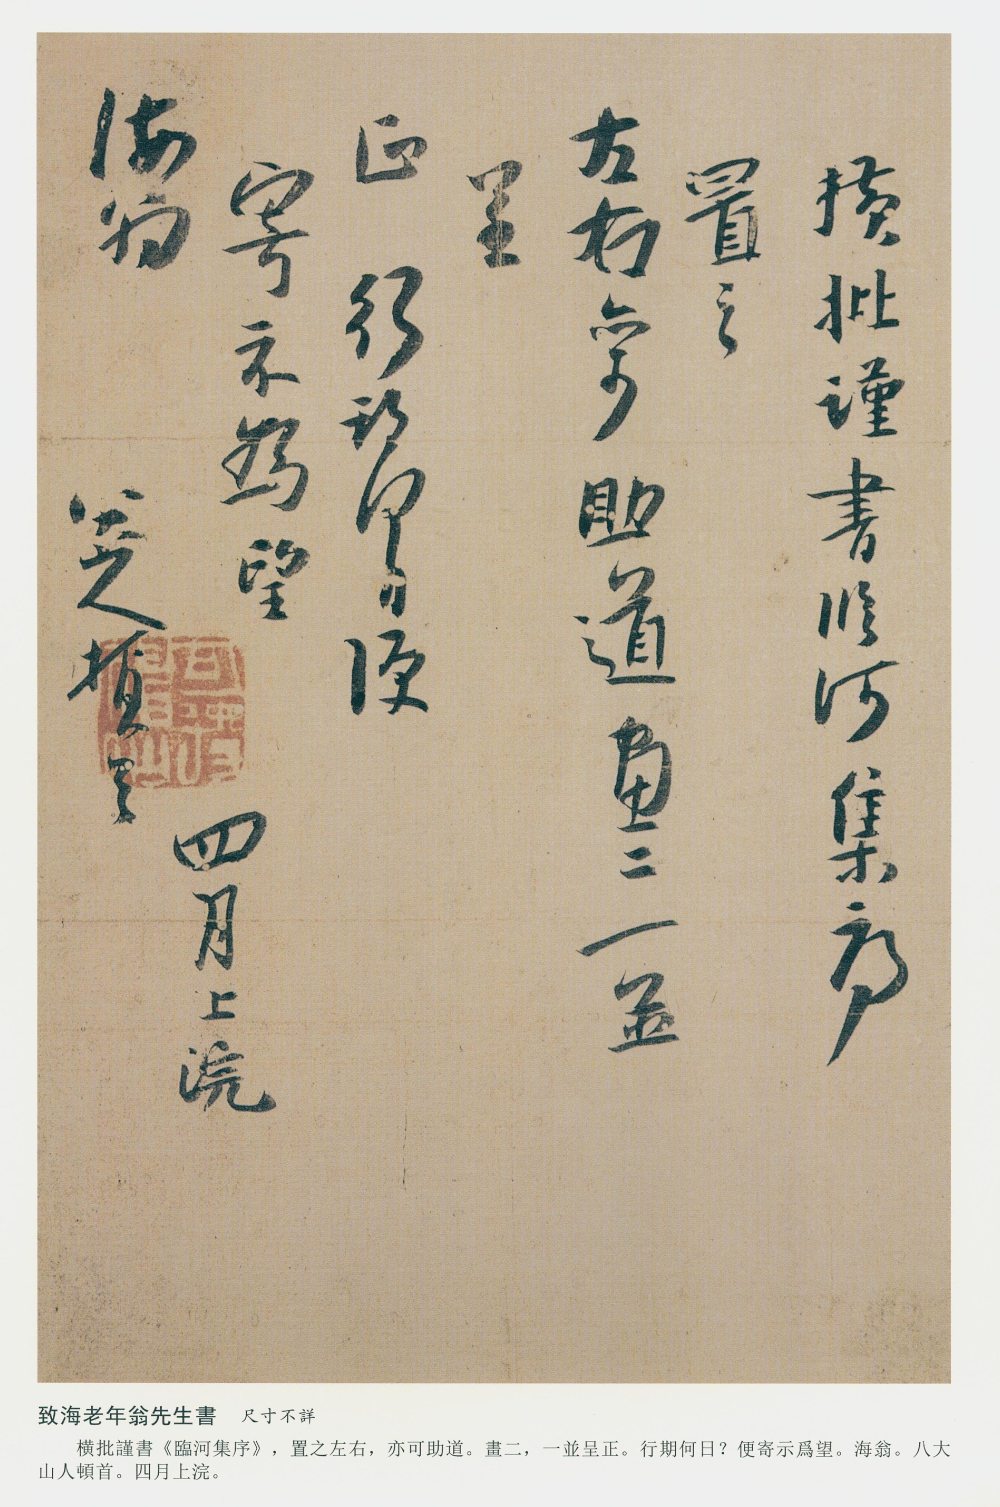 橫批謹書臨河集序
置之
左右亦可助道畫二一並
呈
正行期何日便
寄示爲望
海翁
八大山人頓首
四月上浣
致海老年翁先生書 尺寸不詳
橫批謹書《臨河集序》，置之左右，亦可助道。畫二，一並呈正。行期何日？便寄示爲望。海翁。八大
山人頓首。四月上浣。